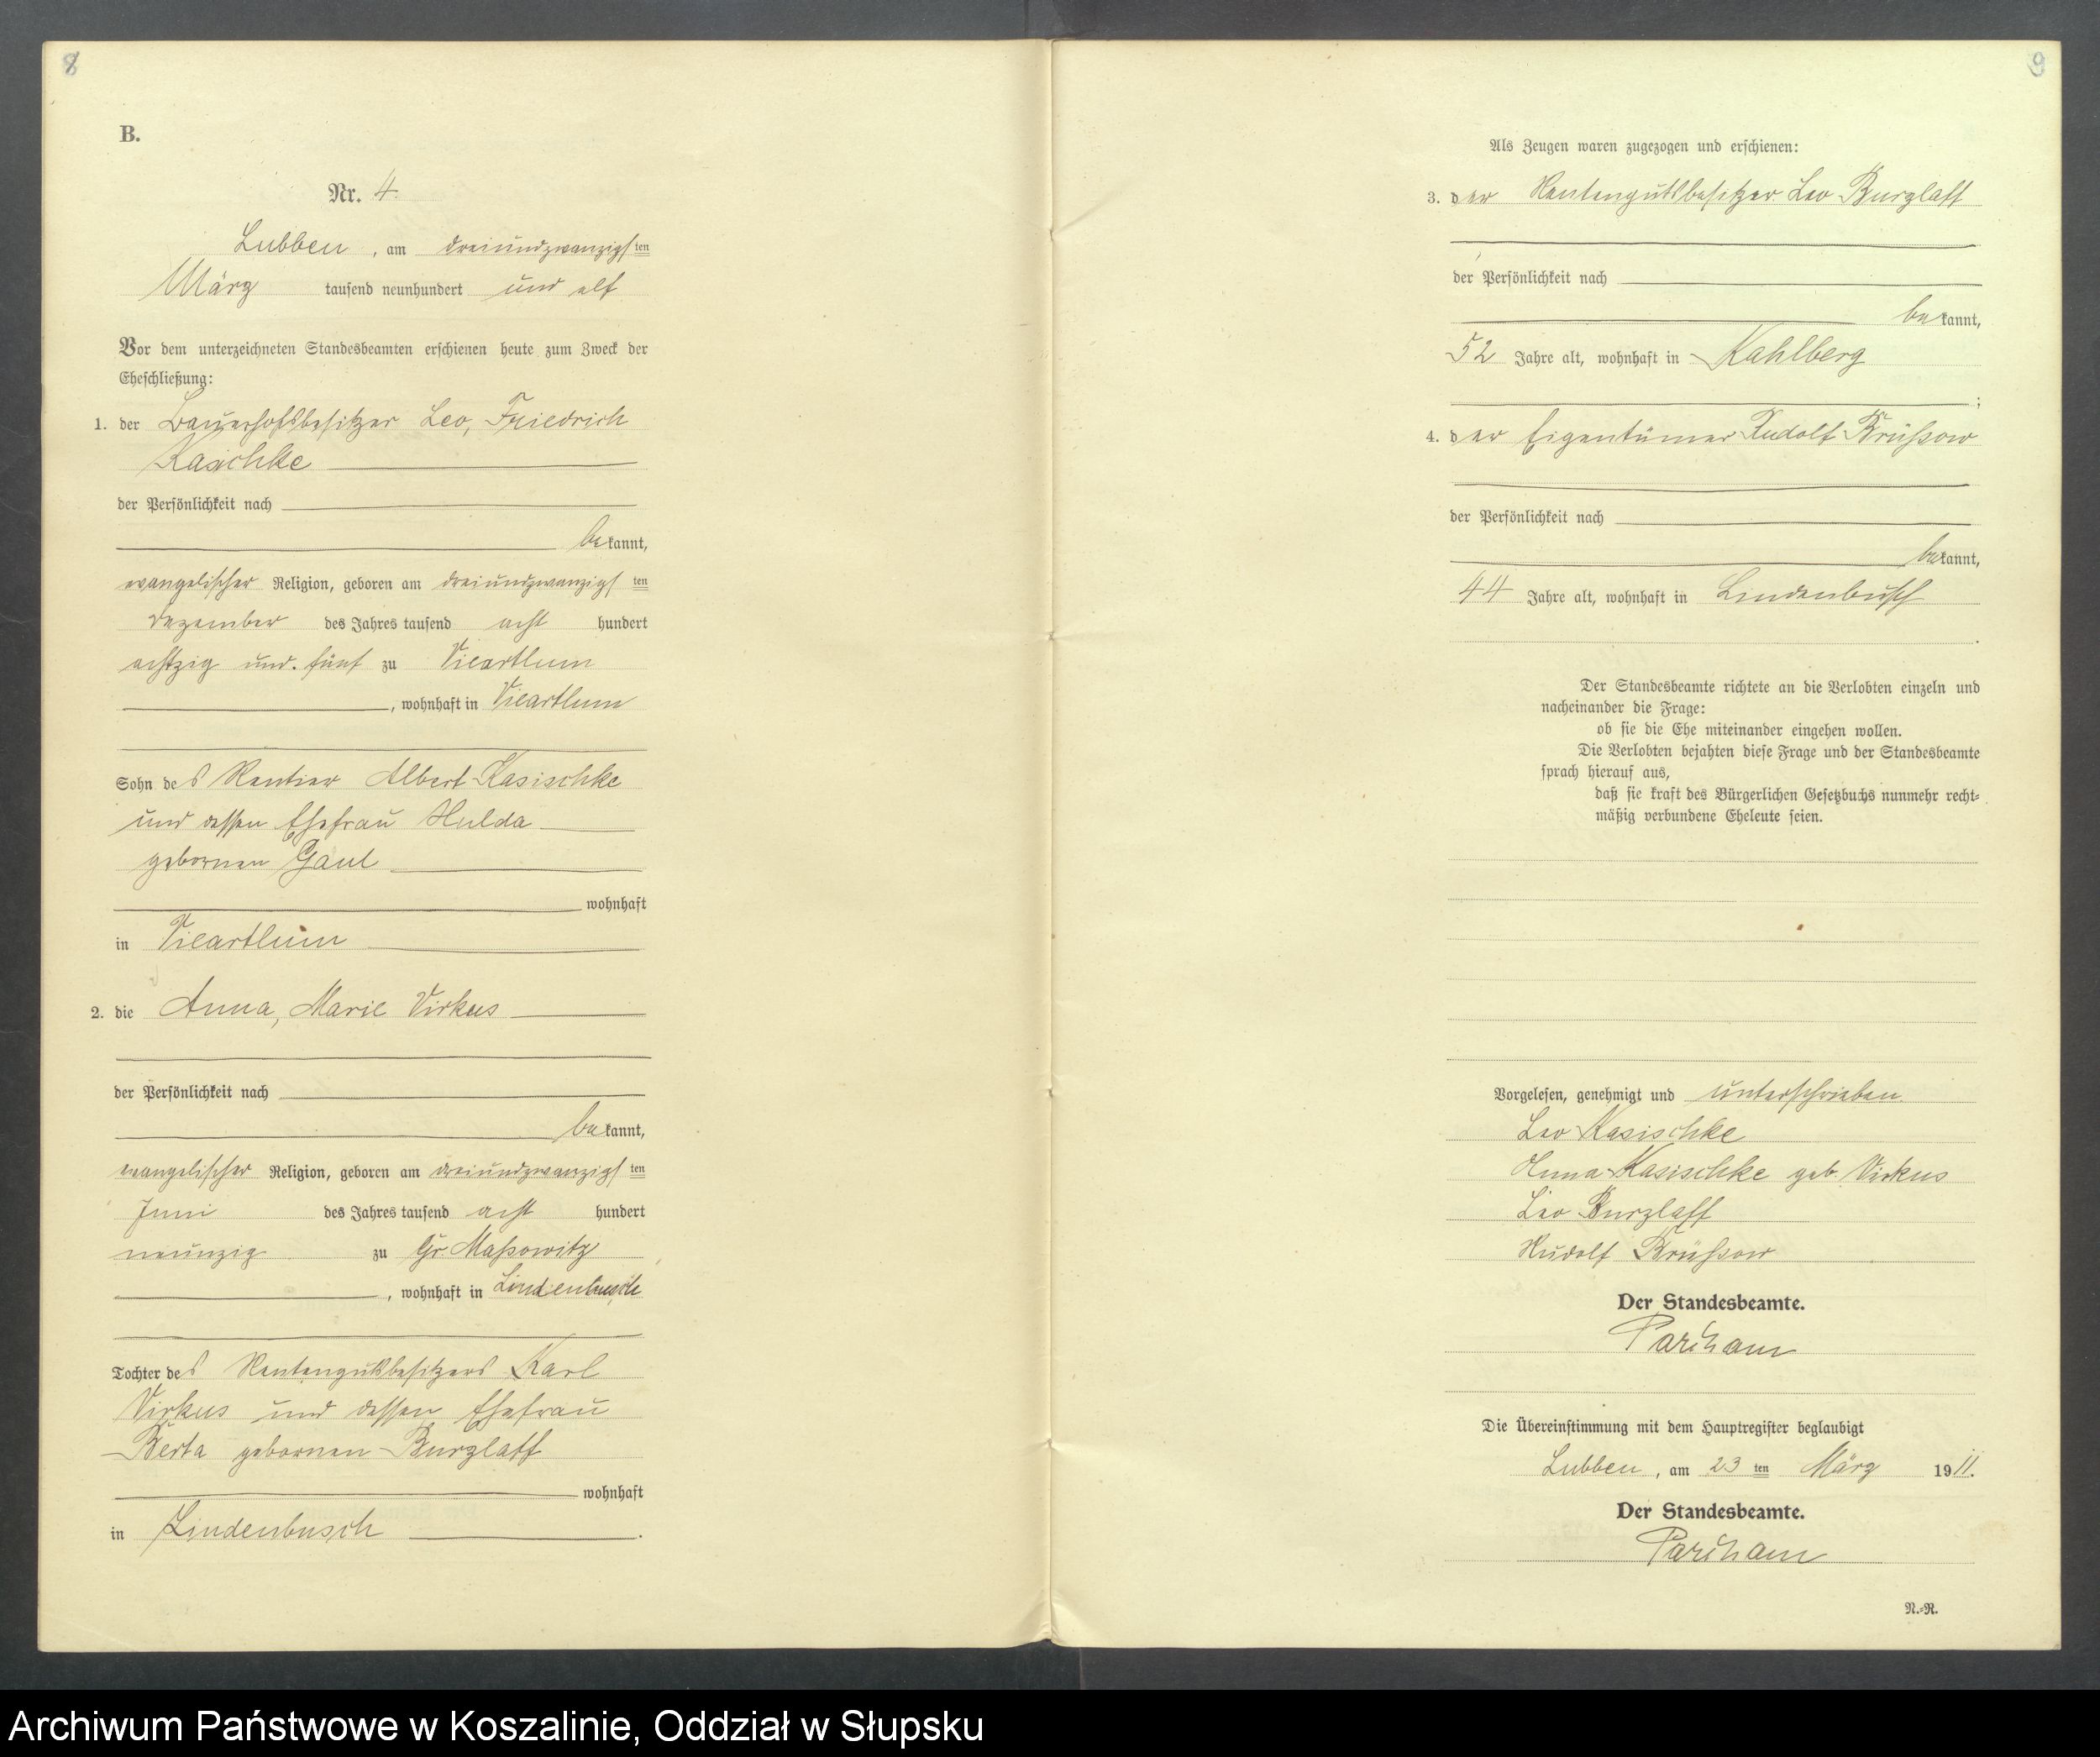 8
B.
Nr. 4.
Lubben, am dreiundzwanzigsten
März tausend neunhundert und elf
Vor dem unterzeichneten Standesbeamten erschienen heute zum Zweck der
Eheschließung:
1. der Bauerhofsbesitzer Leo, Friedrich
Kasischke
der Persönlichkeit nach
bekannt,
evangelischer Religion, geboren am dreiundzwanzigsten
Dezember des Jahres tausend acht hundert
achtzig und. fünf zu Viartlum
, wohnhaft in Viartlum
Sohn des Rentier Albert Kasischke
und dessen Ehefrau Hulda
gebornen Gaul
wohnhaft
in Viartlum
2. die Anna, Marie Virkus
der Persönlichkeit nach
bekannt,
evangelischer Religion, geboren am dreiundzwanzigsten
Juni des Jahres tausend acht hundert
neunzig zu Gr Maßowitz
, wohnhaft in Lindenbusch
Tochter des Rentengutsbesitzers Karl
Virkus und dessen Ehefrau
Berta gebornen Burzlaff
wohnhaft
in Lindenbusch .
9
Als Zeugen waren zugezogen und erschienen:
3. der Rentengutsbesitzer Leo Burzlaff
der Persönlichkeit nach
bekannt,
52 Jahre alt, wohnhaft in Kahlberg
;
4. der Eigentümer Rudolf Brüßow
der Persönlichkeit nach
bekannt,
44 Jahre alt, wohnhaft in Lindenbusch
.
Der Standesbeamte richtete an die Verlobten einzeln und
nacheinander die Frage:
ob sie die Ehe miteinander eingehen wollen.
Die Verlobten bejahten diese Frage und der Standesbeamte
sprach hierauf aus,
daß sie kraft des Bürgerlichen Gesetzbuchs nunmehr recht-
mäßig verbundene Eheleute seien.
Vorgelesen, genehmigt und unterschrieben.
Leo Kasischke
Anna Kasischke geb. Virkus
Leo Burzlaff
Rudolf Brüßow
Der Standesbeamte.
Die Übereinstimmung mit dem Hauptregister beglaubigt
Lubben, am 23 ten März 1911.
Der Standesbeamte.
N.-R.
Archiwum Państwowe w Koszalinie, Oddział w Słupsku